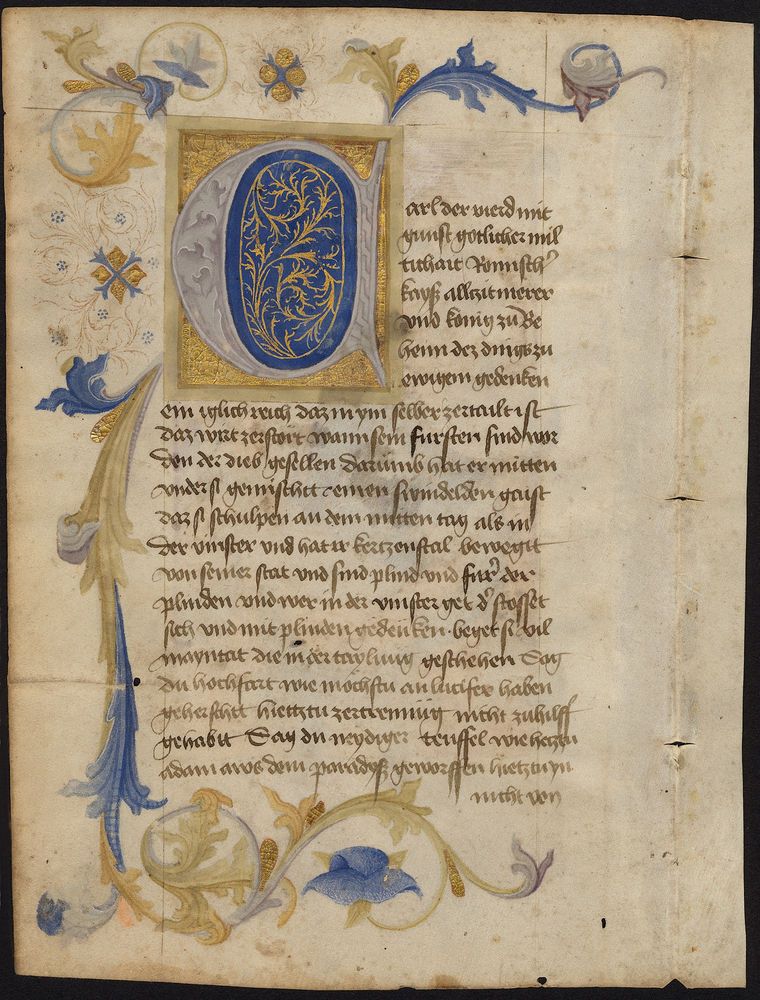 Carl der vierd mit
gunst gotlicher mil
tichait Romischer
kayser allzit merer
vnd konig zu Be
heim dez dings zu
ewigem gedenken
ein iglich reich daz in ym selber zertailt ist
daz wirt zerstort wann sein fursten sind wor
den der dieb gesellen darumb hat er mitten
vnder si gemischet einen swindelden gaist
daz si schulpen an dem mitten tag als in
der vinster vnd hat ir kertzenstal bewegit
von seiner stat vnd sind plind vnd furer der
plinden vnd wer in der vinster get der stosset
sich vnd mit plinden gedenken beget si vil
mayntat die in der taylung geschehen Sag
du hochfart wie mochstu an lucifer haben
geherschet hiettztu zertrennung nicht zuhilff
gehabit Sag du neydiger teuffel wie hetztu
adam aws dem paradyß geworffen hietztu yn
nicht von